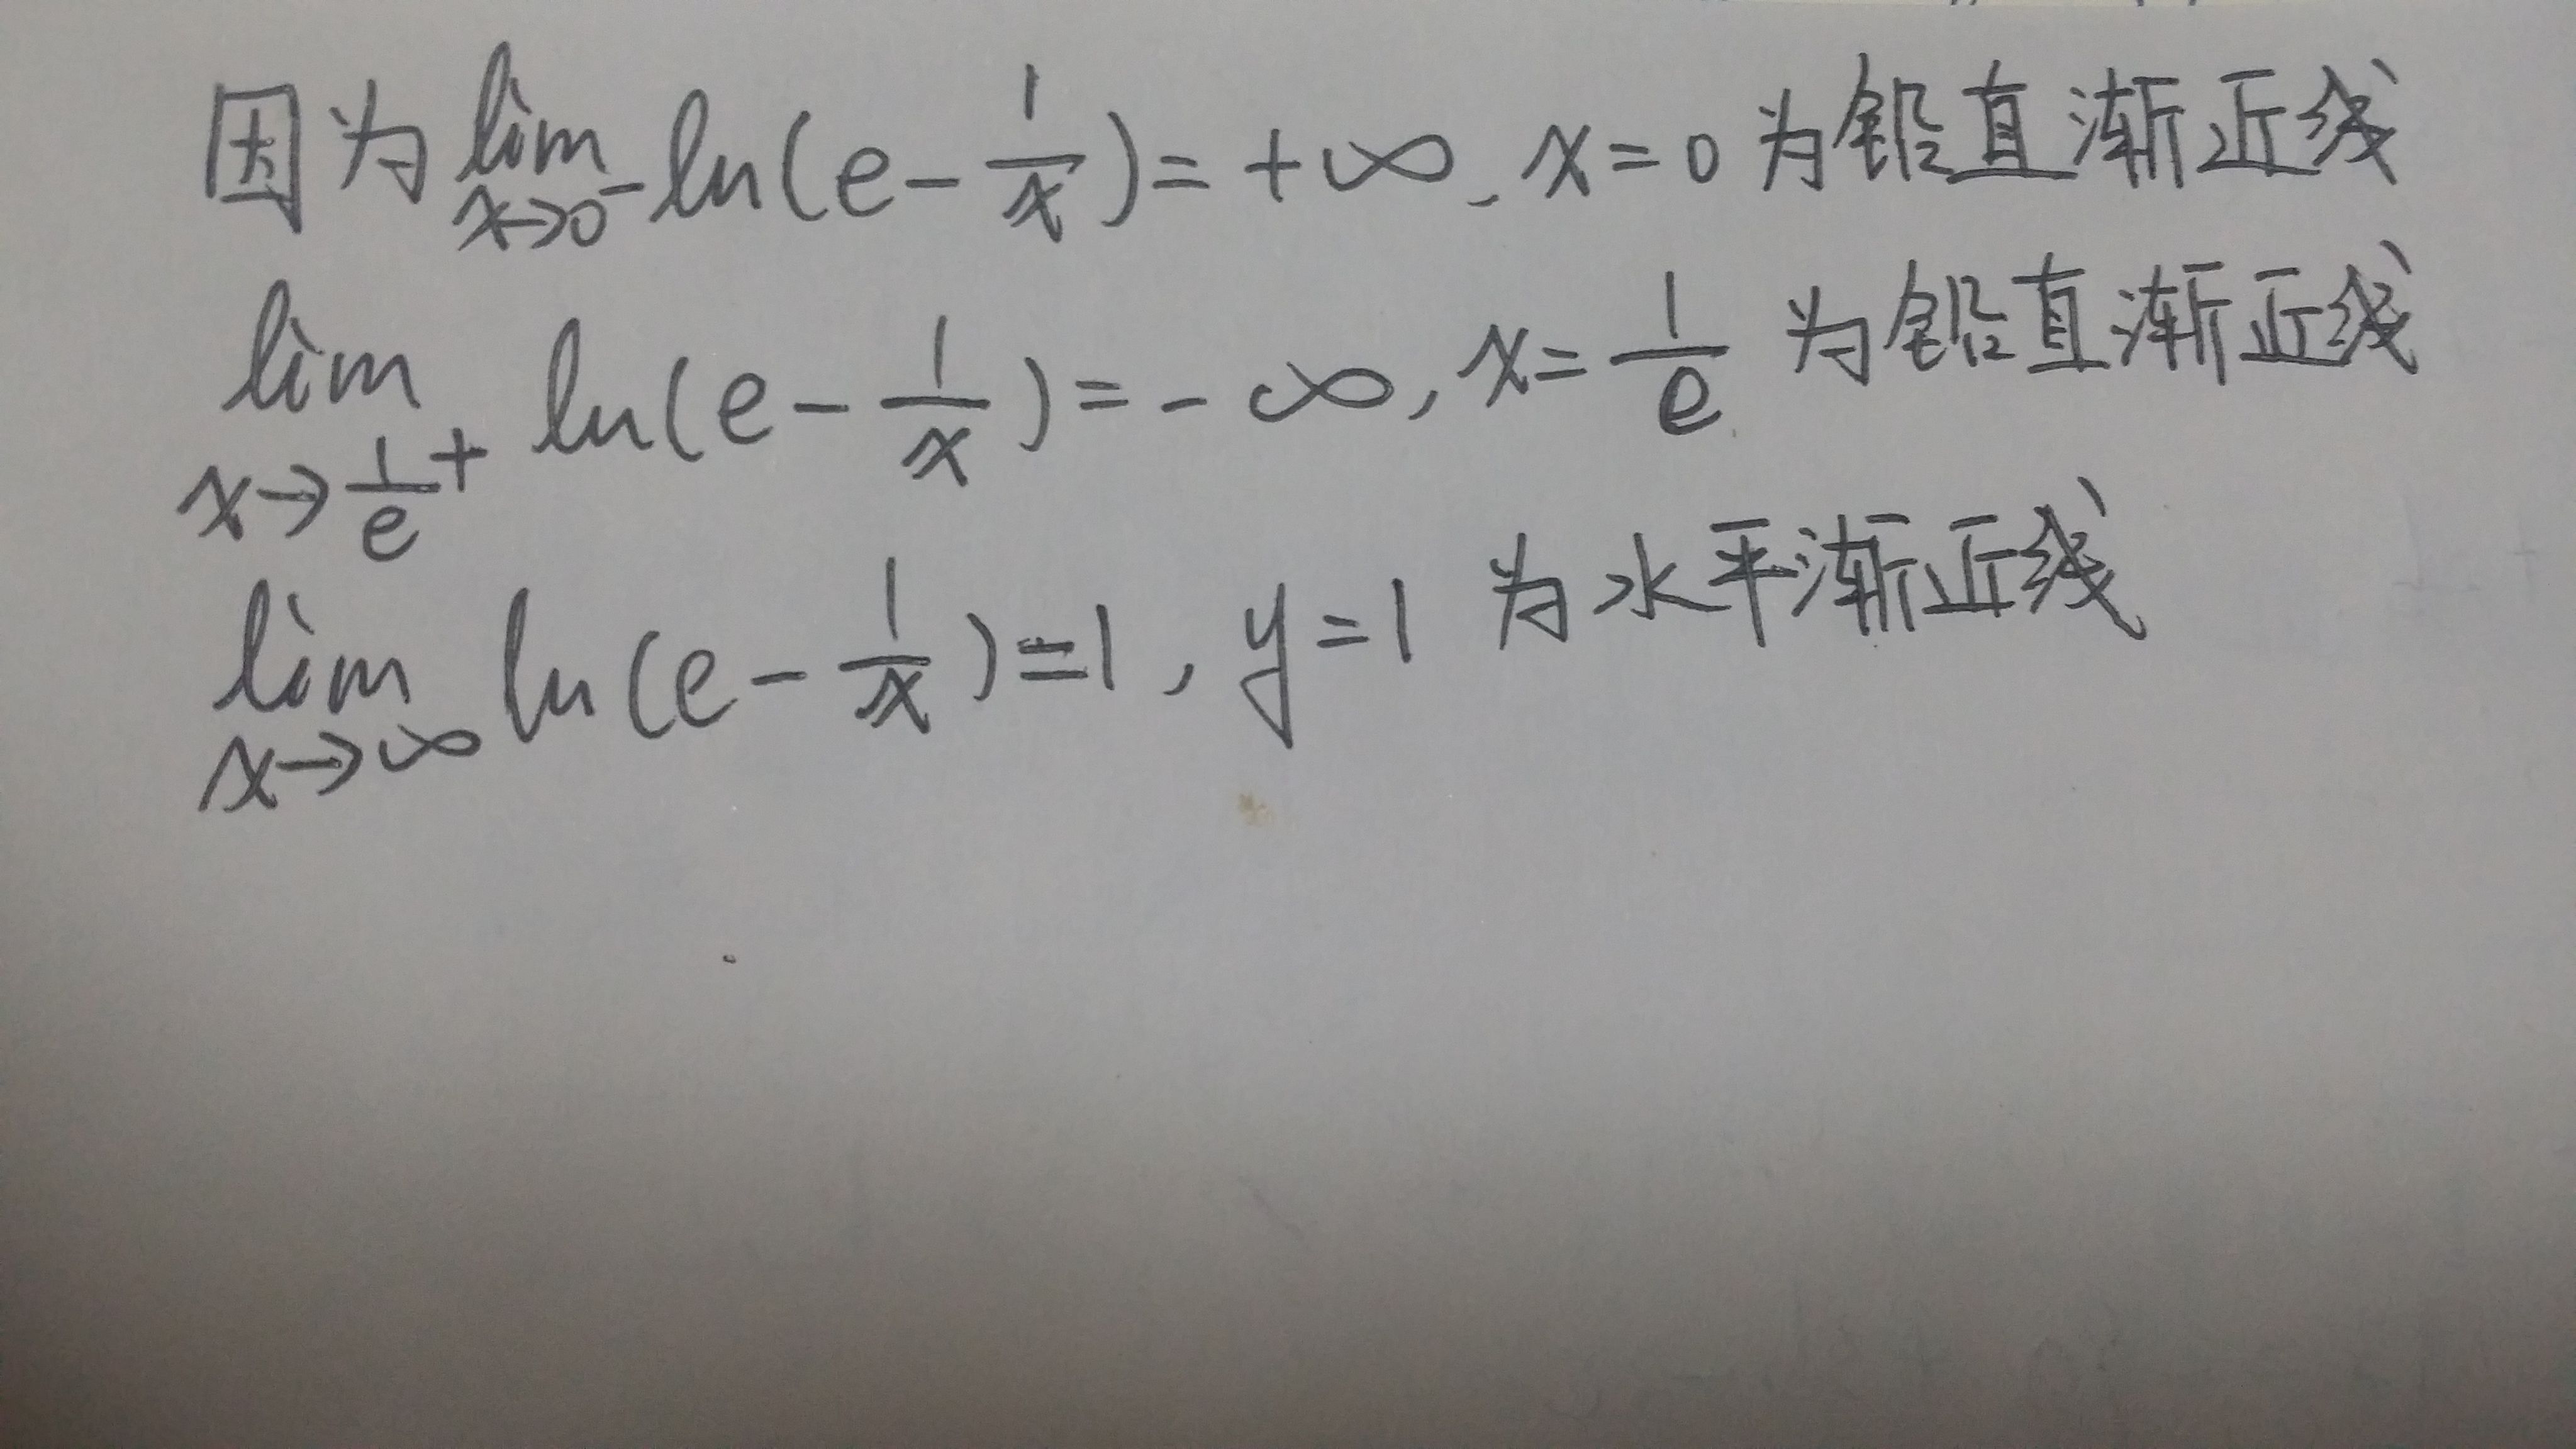 因为 lim x→0⁻ ln(e - 1/x) = +∞, x=0 为铅直渐近线
lim x→1/e⁺ ln(e - 1/x) = -∞, x=1/e 为铅直渐近线
lim x→∞ ln(e - 1/x) = 1, y=1 为水平渐近线